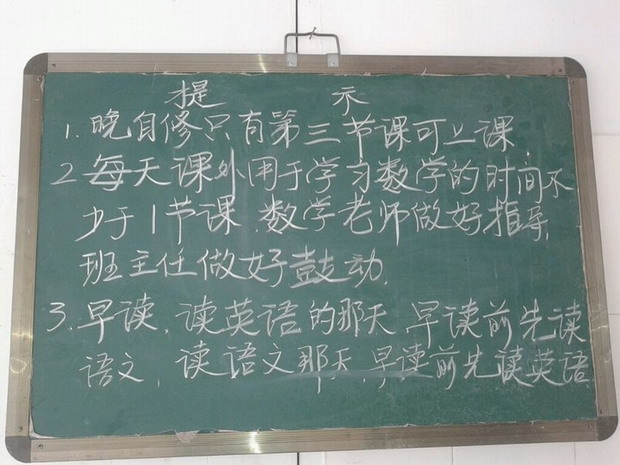 提 示
1. 晚自修只有第三节课可上课
2 每天课外用于学习数学的时间不
少于1节课.数学老师做好指导,
班主任做好鼓动.
3.早读,读英语的那天 早读前先读
语文,读语文那天,早读前先读英语